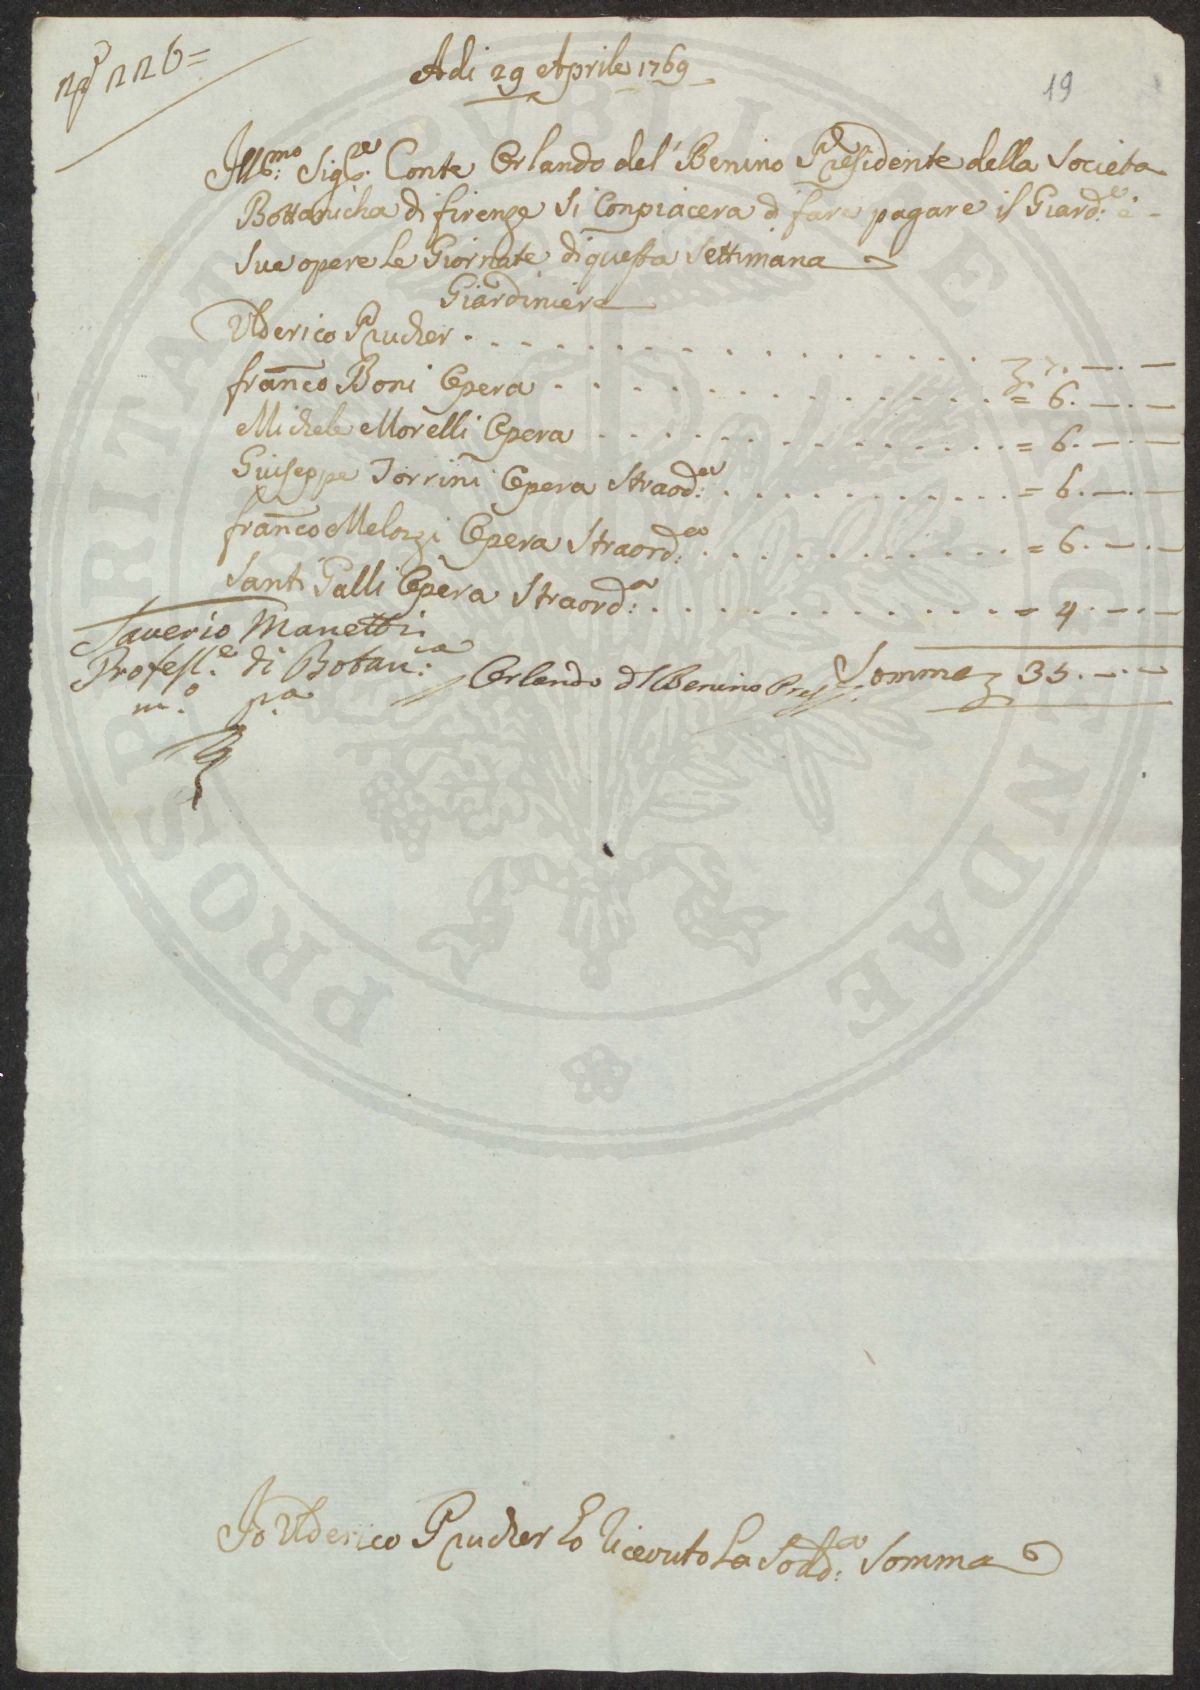 nº 226=
Adi 29 Aprile 1769
19
Ill:mo Sig:re Conte Orlando del' Benino Presidente della Societa
Bottanicha di firenze Si Conpiacera di fare pagare il Giard:e è
Sue opere le Giornate di questa Settimana
Giardiniere
Ulderico Prucher . . . . . . . . . . . . . . . . 7. —. —
franco Boni Opera . . . . . . . . . . . . . . = 6. —. —
Michele Morelli Opera . . . . . . . . . . . . = 6. —. —
Guiseppe Torrini Opera Straod:a . . . . . . . . = 6. —. —
franco Melozzi Opera Straord:a . . . . . . . . = 6. —. —
Santi Galli Opera Straord:a . . . . . . . . . = 4. —. —
Saverio Manetti
Profess:e di Botan:ca
m:o p:a
Orlando del Benino Pres:
Somma 35. —. —
Io Ulderico Prucher ho ricevuto la Sodd:a Somma
PROSPERITATI PUBLICAE AUGENDAE